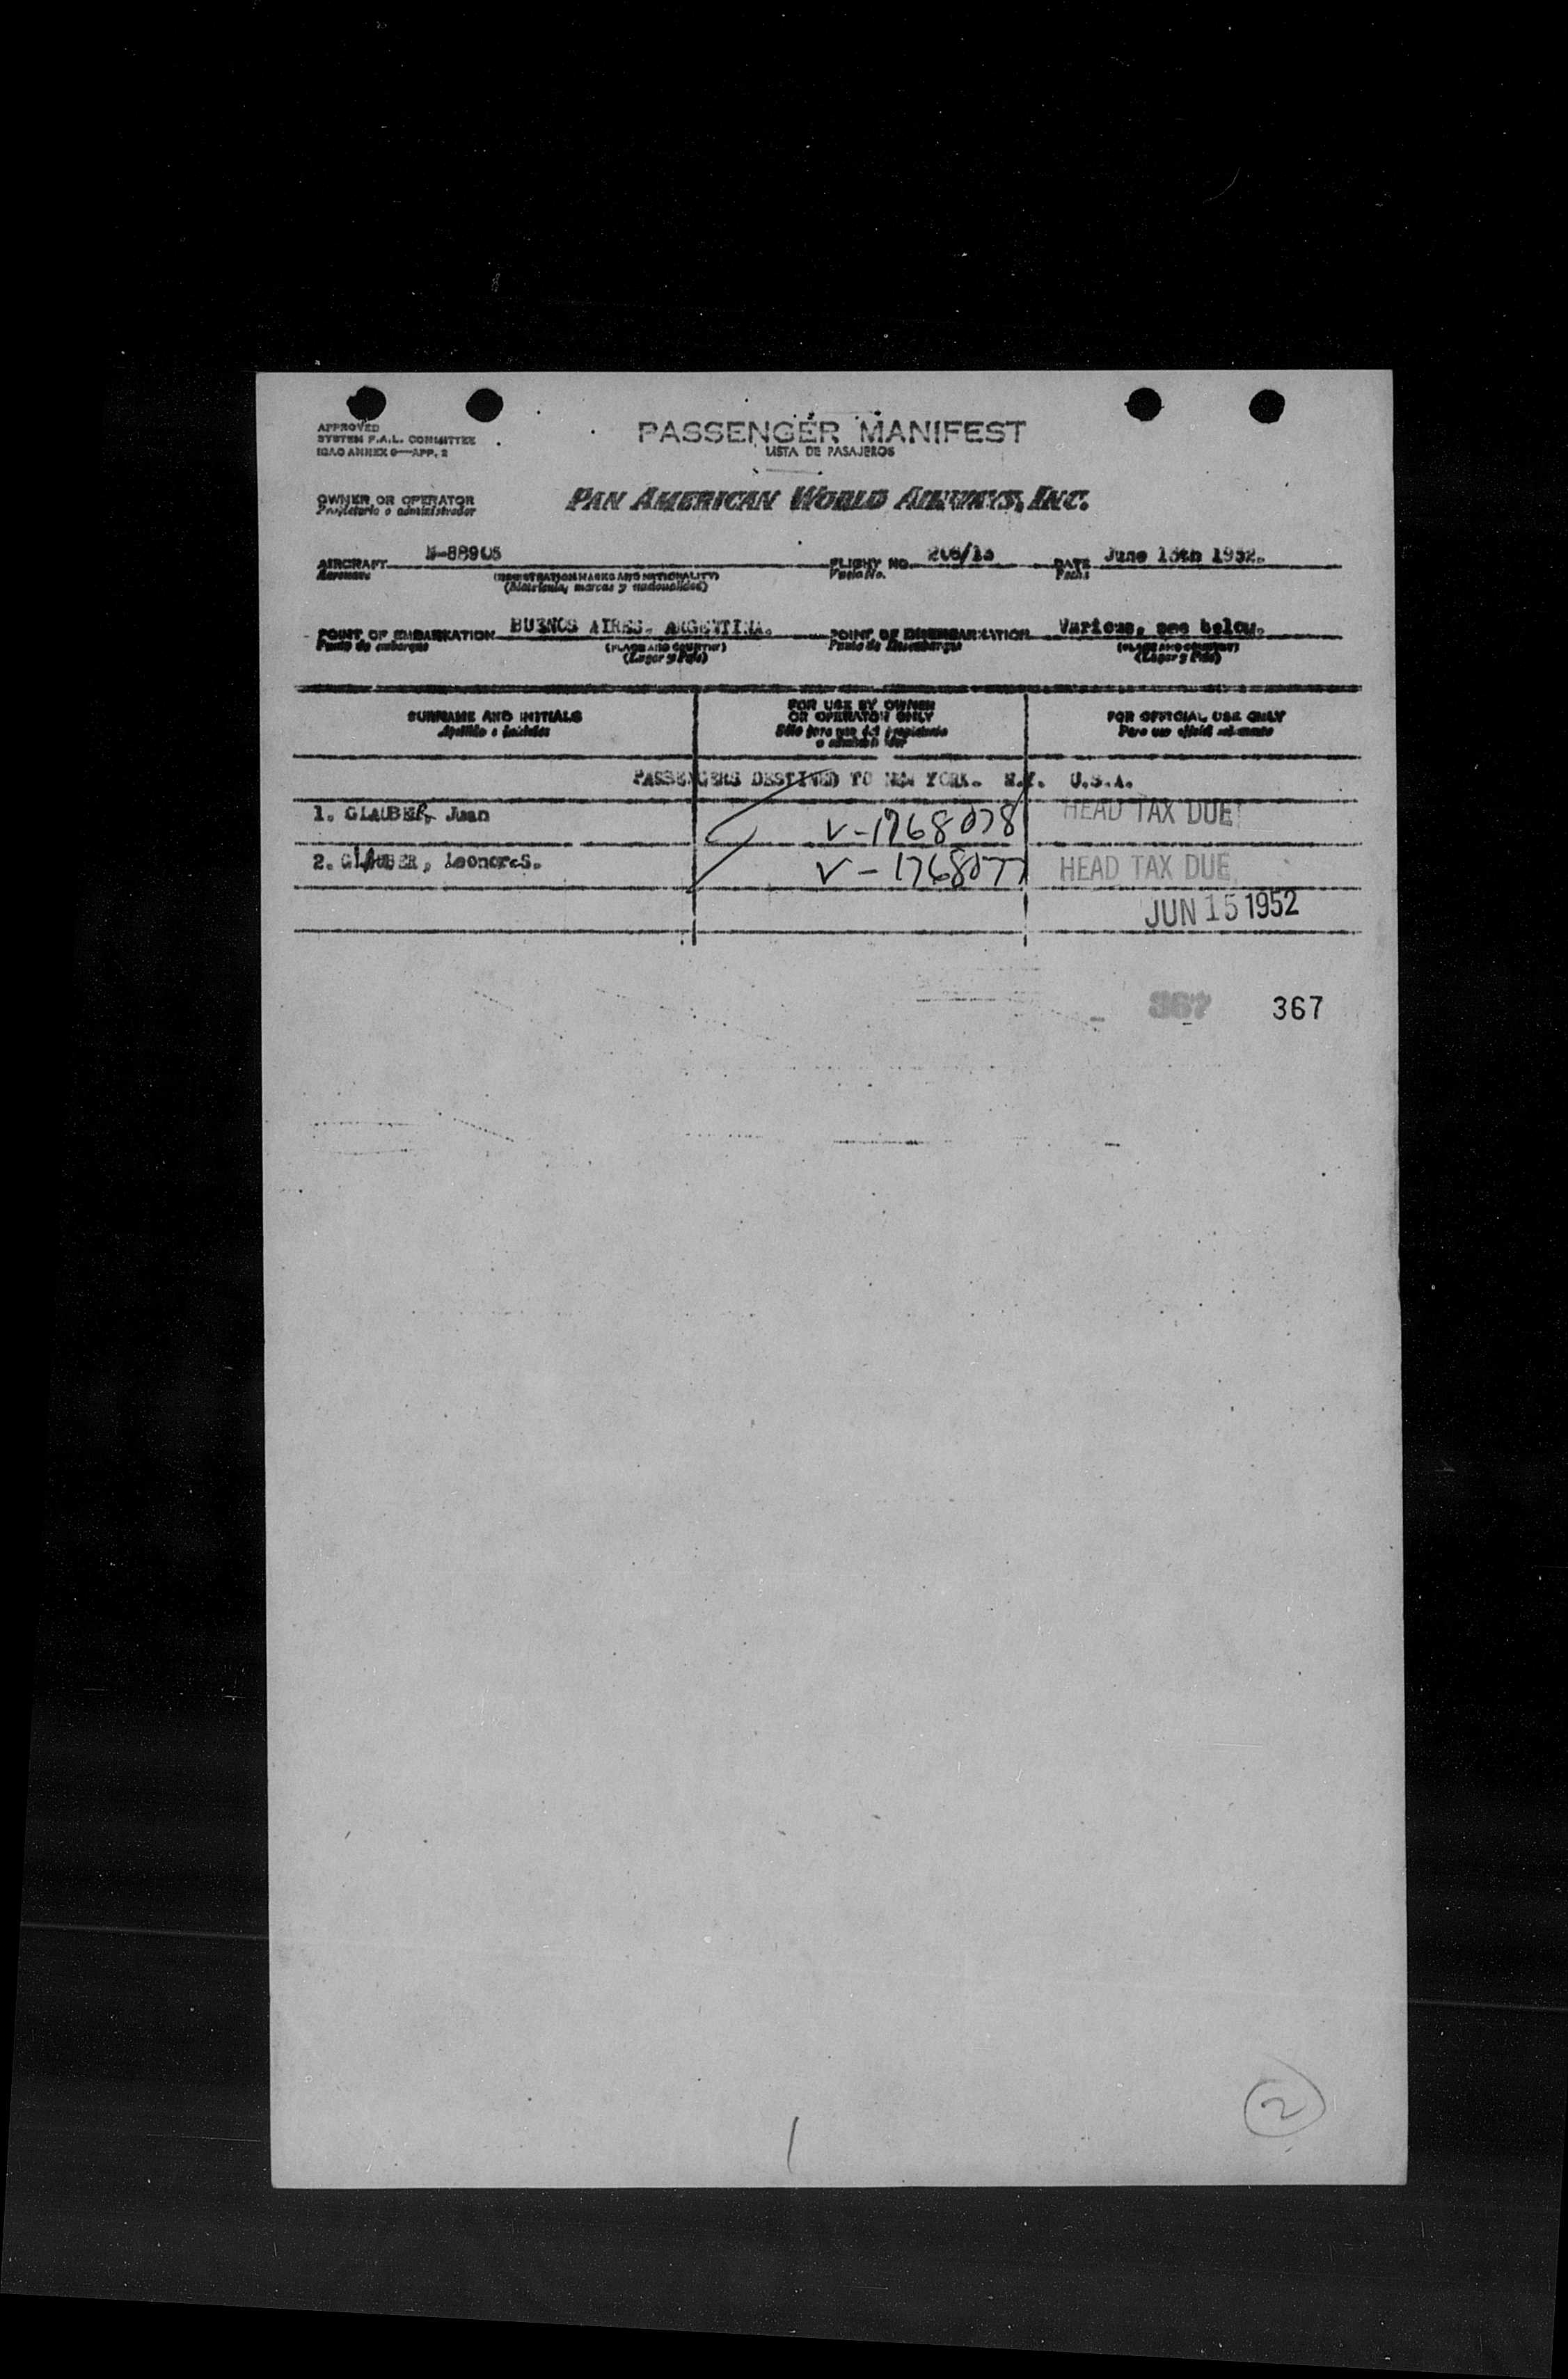 APPROVED
SYSTEM F.A.L. COMMITTEE
ICAO ANNEX 9—APP. 2
PASSENGER MANIFEST
LISTA DE PASAJEROS
OWNER OR OPERATOR
Propietario o administrador
PAN AMERICAN WORLD AIRWAYS, INC.
AIRCRAFT N-88905 FLIGHT NO. DATE June 1952.
Aeronave Vuelo No. Fecha
(REGISTRATION MARKS AND NATIONALITY)
(Matrícula, marcas y nacionalidad)
POINT OF EMBARKATION BUENOS AIRES. ARGENTINA. POINT OF DISEMBARKATION Various, see below.
Punto de embarque (PLACE AND COUNTRY) Punto de Desembarque (PLACE AND COUNTRY)
(Lugar y País) (Lugar y País)
SURNAME AND INITIALS
Apellido e iniciales
FOR USE BY OWNER
OR OPERATOR ONLY
Sólo para uso del propietario
o administrador
FOR OFFICIAL USE ONLY
Para uso oficial solamente
PASSENGERS DESTINED TO NEW YORK. N.Y. U.S.A.
1. GLAUBER, Juan V-1768078 HEAD TAX DUE
2. GLAUBER, Leonor S. V-1768077 HEAD TAX DUE
JUN 15 1952
367 367
2